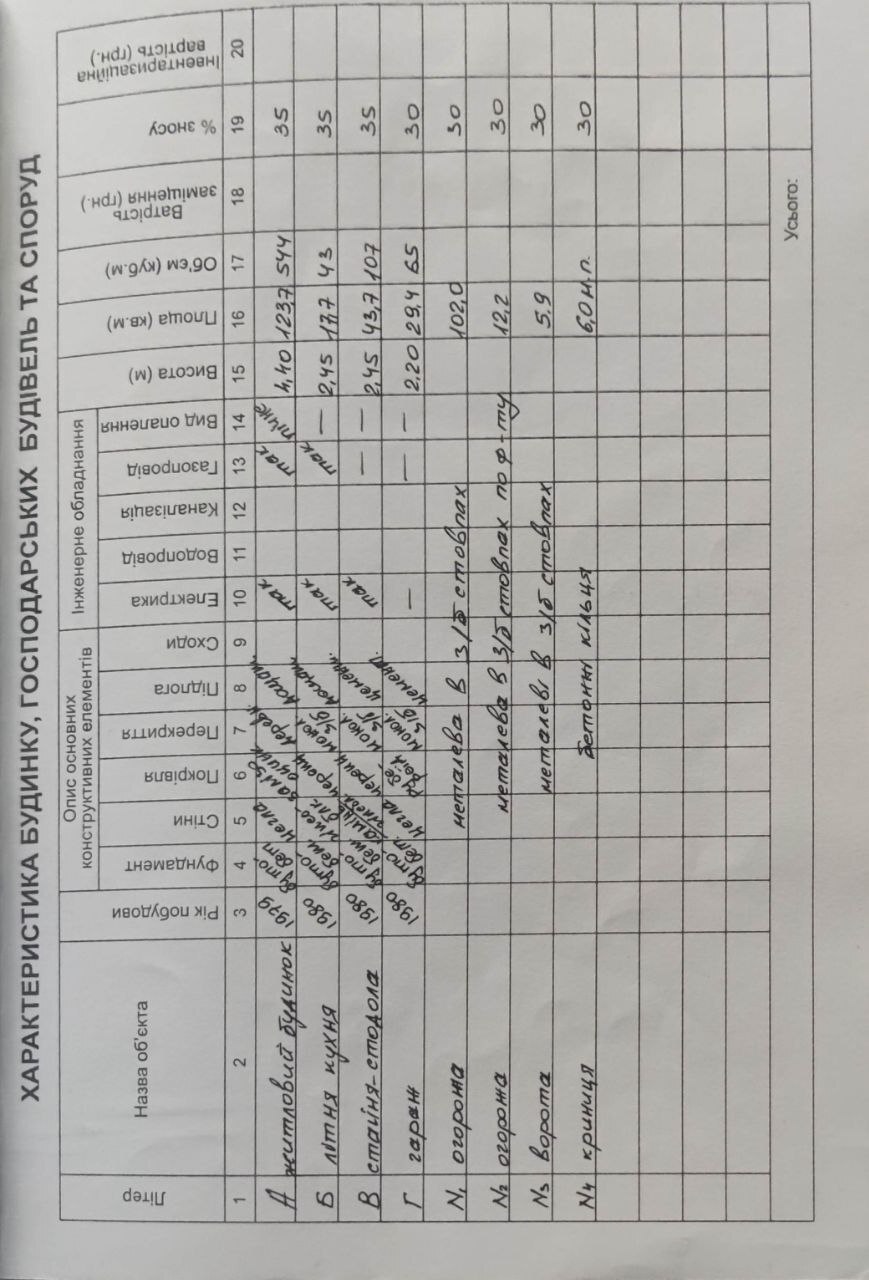 ХАРАКТЕРИСТИКА БУДИНКУ, ГОСПОДАРСЬКИХ БУДІВЕЛЬ ТА СПОРУД
Літер
Назва об'єкта
Рік побудови
Опис основних
конструктивних елементів
Фундамент
Стіни
Покрівля
Перекриття
Підлога
Сходи
Інженерне обладнання
Електрика
Водопровід
Каналізація
Газопровід
Вид опалення
Висота (м)
Площа (кв.м)
Об'єм (куб.м)
Ватрість
заміщення (грн.)
% зносу
Інвентаризаційна
вартість (грн.)
1 2 3 4 5 6 7 8 9 10 11 12 13 14 15 16 17 18 19 20
А житловий будинок 1979 буто-бет цегла дощат. так так пічне 4,40 123,7 544 35
Б літня кухня 1980 буто-бет. черепиц монол з/б дощат. так так — 2,45 17,7 43 35
В стайня-стодола 1980 буто-бет. черепиц монол з/б цементн. так — — 2,45 43,7 107 35
Г гараж 1980 буто-бет. цегла монол. з/б цементн. — — — 2,20 29,4 65 30
N1 огорожа металева в з/б стовпах 102,0 30
N2 огорожа металева в з/б стовпах по ф-ту 12,2 30
N3 ворота металеві в з/б стовпах 5,9 30
N4 криниця бетонні кільця 6,0 м.п. 30
Усього: